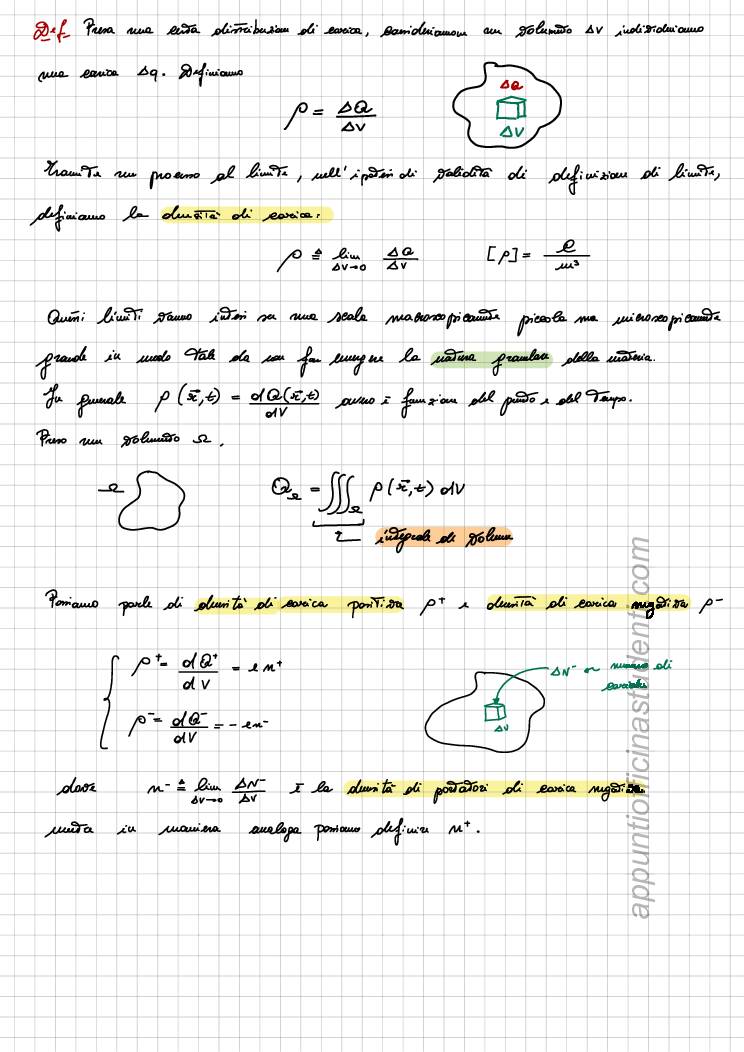 Def. Presa una certa distribuzione di carica, consideriamo un volumetto ΔV individuiamo
una carica Δq. Definiamo
ρ = ΔQ/ΔV
ΔQ
ΔV
Tramite un processo al limite, nell'ipotesi di validità di definizione di limite,
definiamo la densità di carica:
ρ ≜ lim ΔV→0 ΔQ/ΔV [ρ] = C/m³
Questi limiti vanno intesi su una scala macroscopicamente piccola ma microscopicamente
grande in modo tale da non far emergere la natura granulare della materia.
In generale ρ(r⃗,t) = dQ(r⃗,t)/dV ovvero è funzione del punto e del tempo.
Preso un volumetto Ω,
Ω
Q_Ω = ∭_Ω ρ(r⃗,t) dV
integrale di volume
Possiamo parlare di densità di carica positiva ρ⁺ e densità di carica negativa ρ⁻
ρ⁺ = dQ⁺/dV = e n⁺
ρ⁻ = dQ⁻/dV = -e n⁻
ΔN⁻ numero di
cariche
ΔV
dove n⁻ ≜ lim ΔV→0 ΔN⁻/ΔV è la densità di portatori di carica negativa
in maniera analoga possiamo definire n⁺.
appuntiofficinastudenti.com